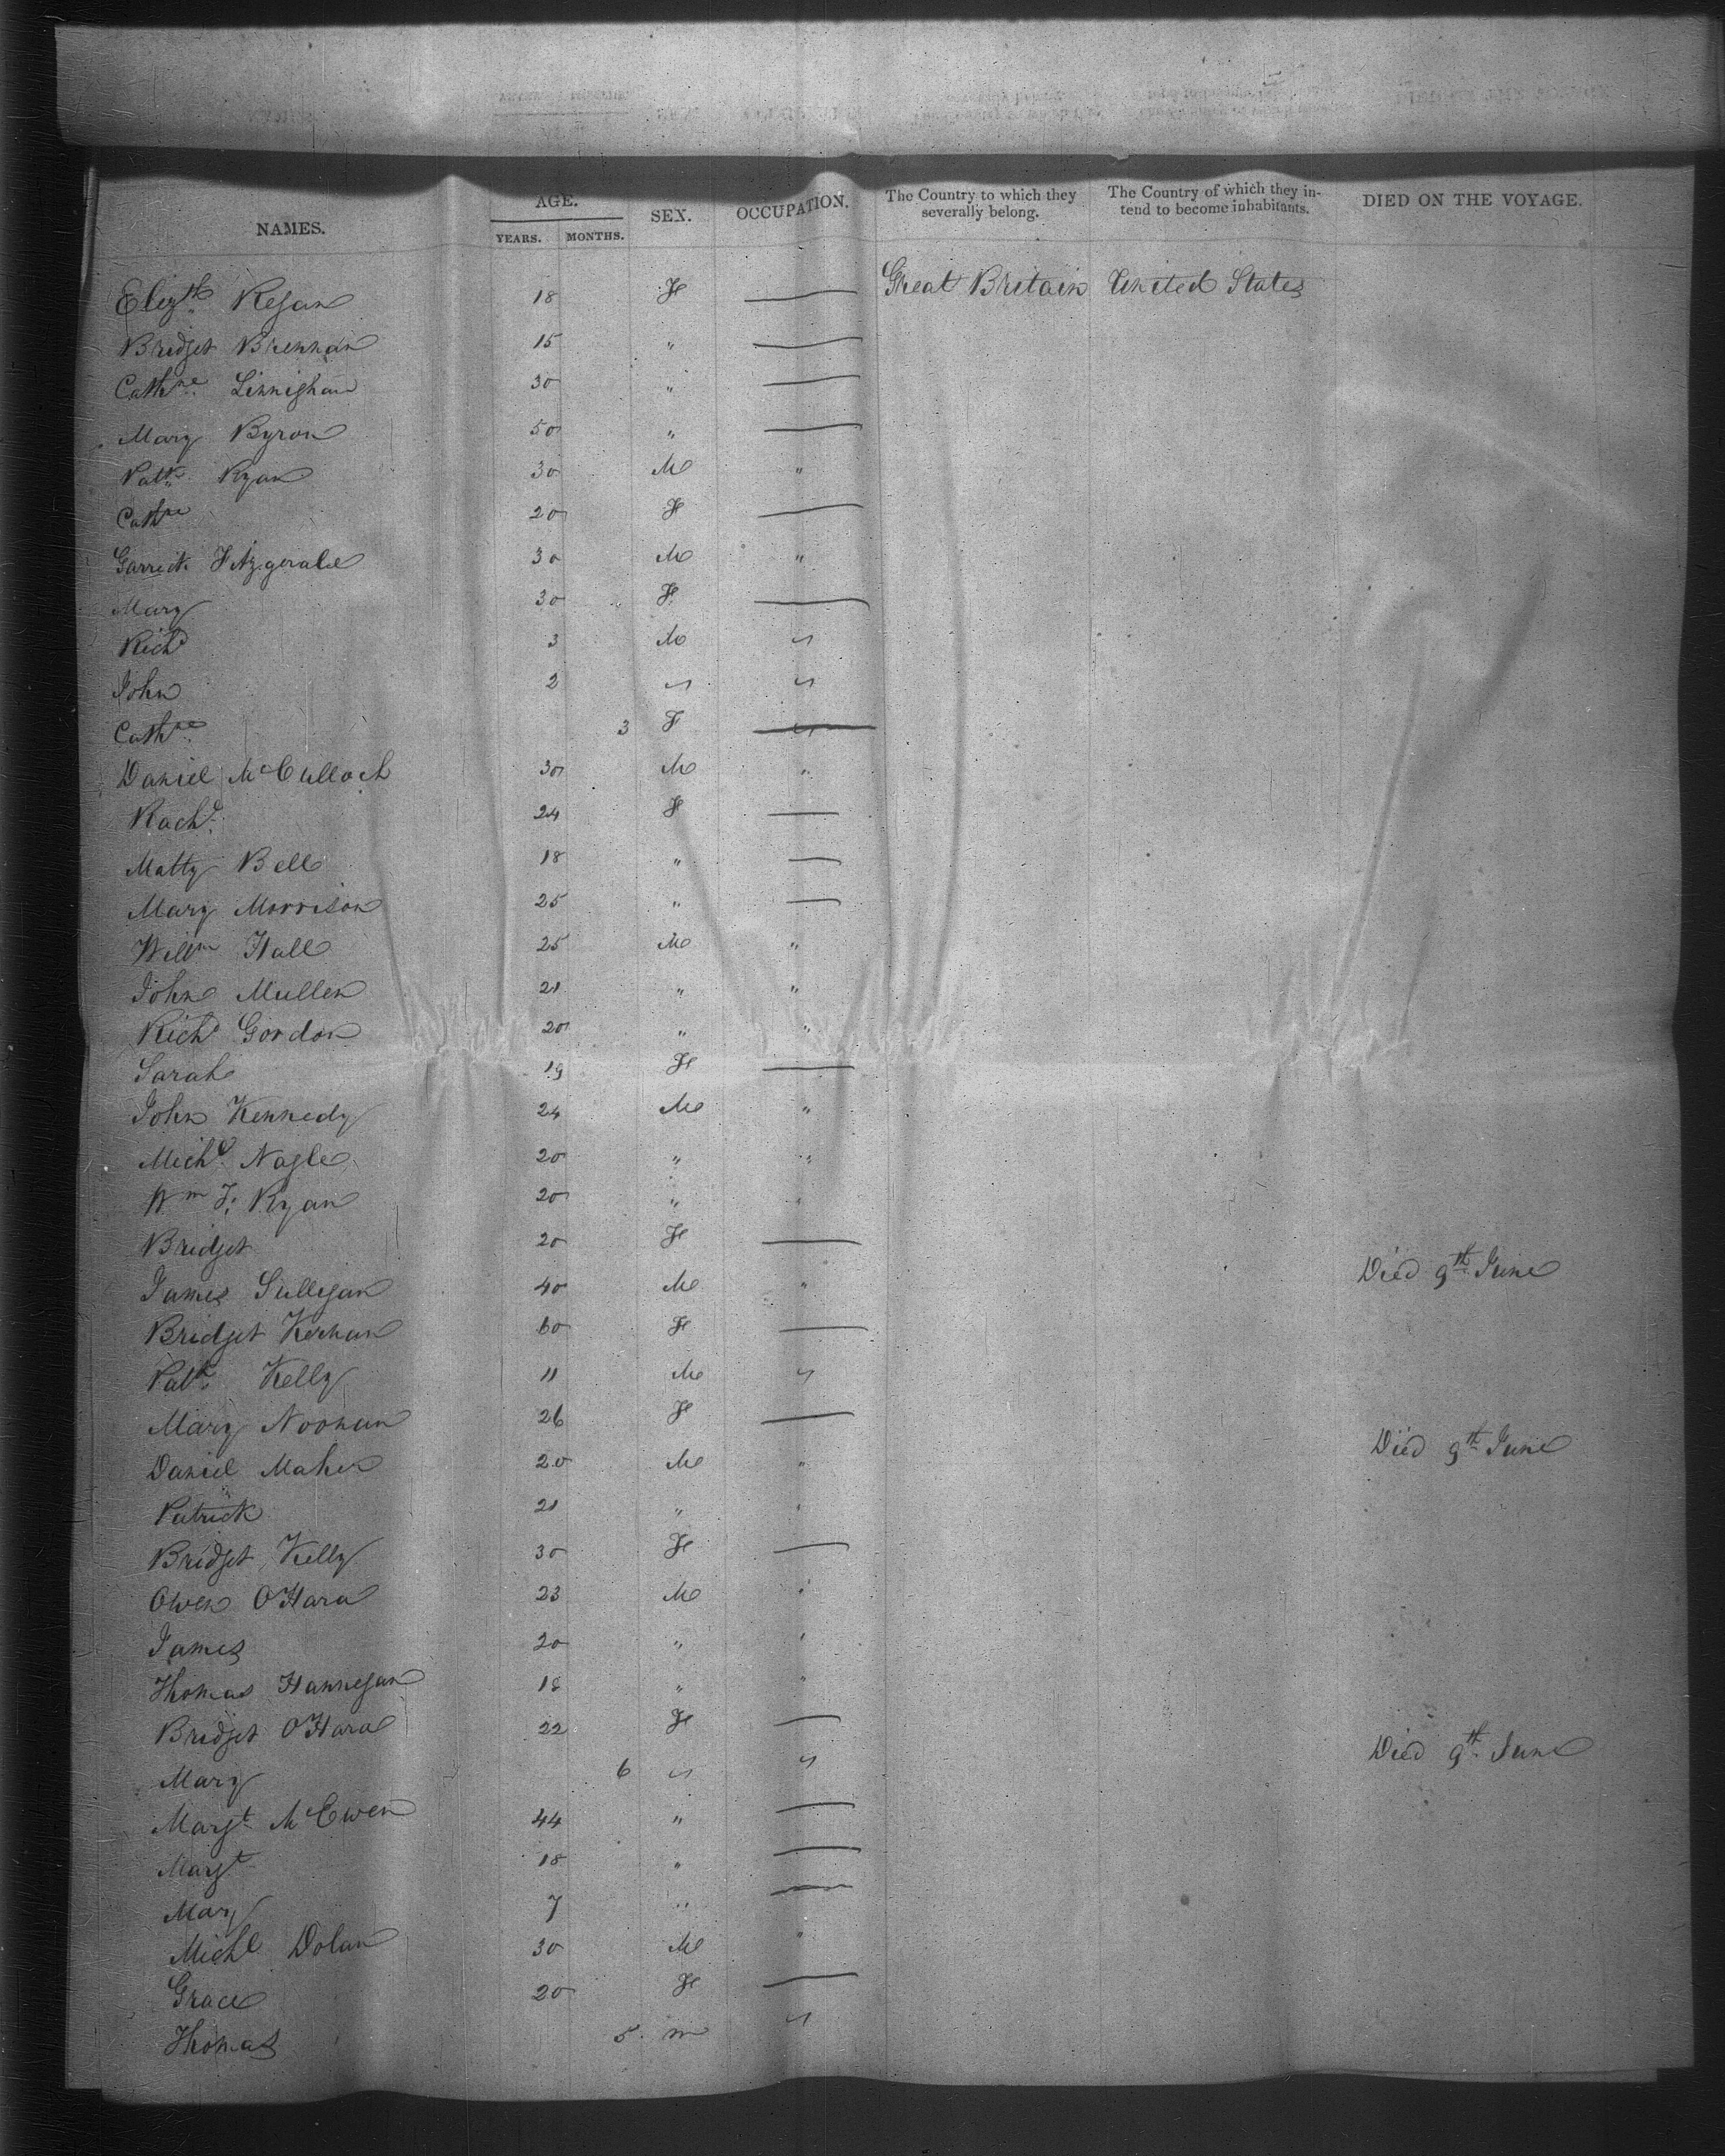 NAMES. AGE. YEARS. MONTHS. SEX. OCCUPATION. The Country to which they severally belong. The Country of which they intend to become inhabitants. DIED ON THE VOYAGE.
Elizth Regan 18 F —— Great Britain United States
Bridget Brennan 15 " ——
Cathne Linnighan 30 " ——
Mary Byron 50 " ——
Patk Ryan 30 M "
Cathne 20 F ——
Garrett Fitzgerald 30 M "
Mary 30 F ——
Richd 3 M "
John 2 " "
Cathne 3 F ——
Daniel McCulloch 30 M "
Rachl 24 F ——
Matty Bell 18 " ——
Mary Morrison 25 " ——
Willm Hall 25 M "
John Mullen 21 " "
Richd Gordon 20 " "
Sarah 19 F ——
John Kennedy 24 M "
Michl Nagle 20 " "
Wm F. Ryan 20 " "
Bridget 20 F ——
James Sulligan 40 M " Died 9th June
Bridget Kernan 60 F ——
Patk Kelly 11 M "
Mary Noonan 26 F ——
Daniel Maher 20 M " Died 9th June
Patrick 21 " "
Bridget Kelly 30 F ——
Owen O'Hara 23 M "
James 20 " "
Thomas Hannegan 18 " "
Bridget O'Hara 22 F ——
Mary 6 " " Died 9th June
Margt McEwen 44 " ——
Margt 18 " ——
Mary 7 " ——
Michl Dolan 30 M "
Grace 20 F ——
Thomas 5 m "